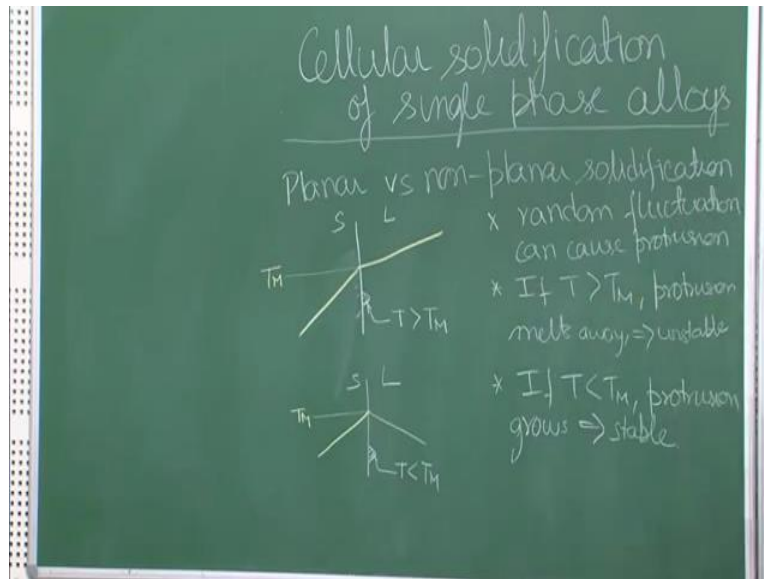 Cellular solidification
of single phase alloys
Planar vs non-planar solidification
S L
TM
T>TM
* random fluctuation
can cause protrusion
* If T>TM, protrusion
melts away, => unstable
S L
TM
T<TM
* If T<TM, protrusion
grows => stable